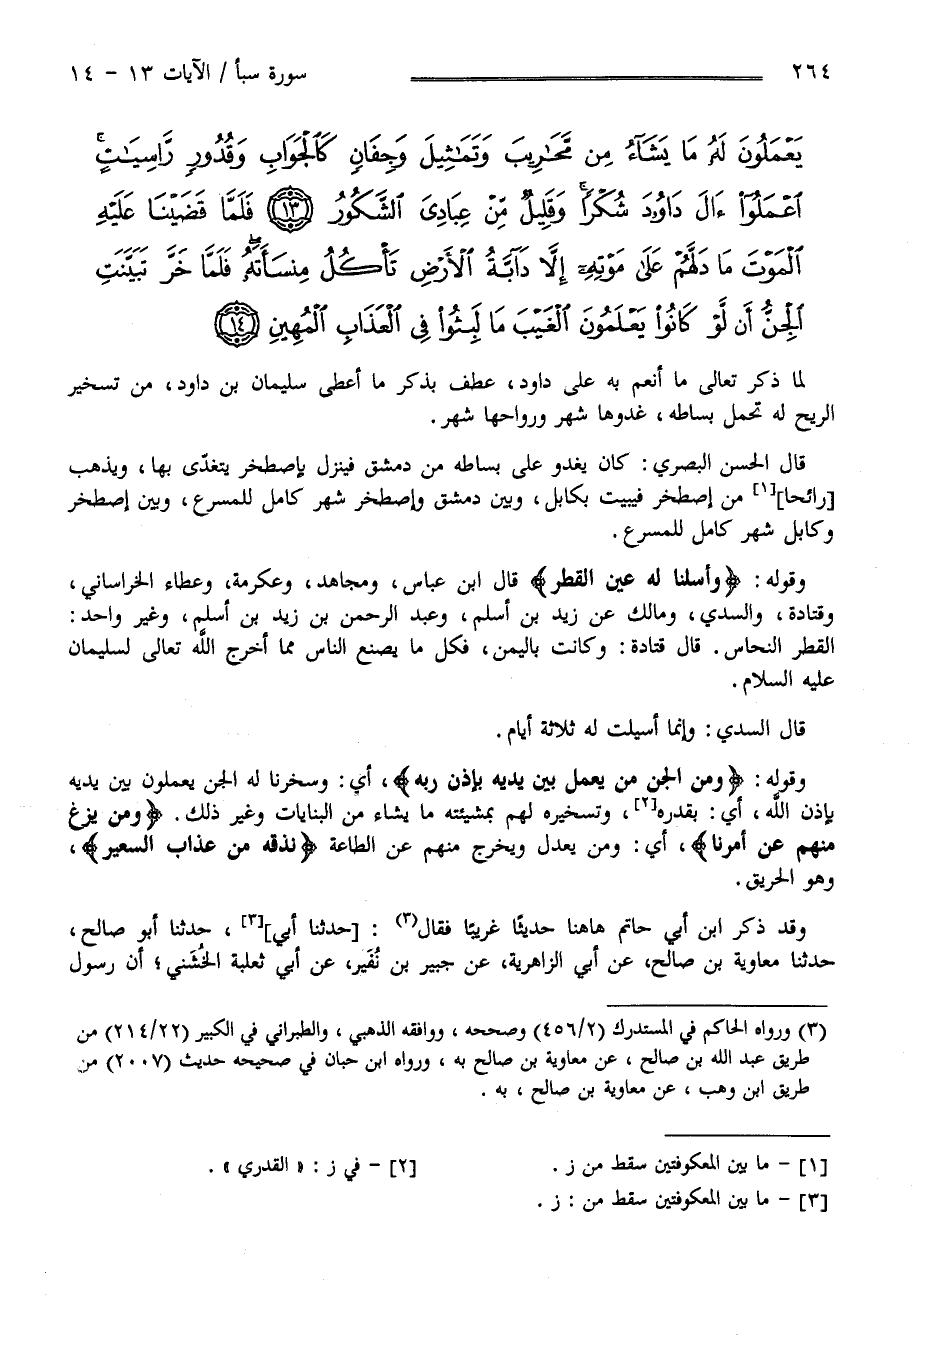 ٢٦٤ سورة سبأ / الآيات ١٣ - ١٤
يَعْمَلُونَ لَهُۥ مَا يَشَآءُ مِن مَّحَٰرِيبَ وَتَمَٰثِيلَ وَجِفَانٍ كَٱلْجَوَابِ وَقُدُورٍ رَّاسِيَٰتٍ ۚ
ٱعْمَلُوٓا۟ ءَالَ دَاوُۥدَ شُكْرًا ۚ وَقَلِيلٌ مِّنْ عِبَادِىَ ٱلشَّكُورُ ﴿١٣﴾ فَلَمَّا قَضَيْنَا عَلَيْهِ
ٱلْمَوْتَ مَا دَلَّهُمْ عَلَىٰ مَوْتِهِۦٓ إِلَّا دَآبَّةُ ٱلْأَرْضِ تَأْكُلُ مِنسَأَتَهُۥ ۖ فَلَمَّا خَرَّ تَبَيَّنَتِ
ٱلْجِنُّ أَن لَّوْ كَانُوا۟ يَعْلَمُونَ ٱلْغَيْبَ مَا لَبِثُوا۟ فِى ٱلْعَذَابِ ٱلْمُهِينِ ﴿١٤﴾
لما ذكر تعالى ما أنعم به على داود، عطف بذكر ما أعطى سليمان بن داود، من تسخير
الريح له تحمل بساطه، غدوها شهر ورواحها شهر.
قال الحسن البصري: كان يغدو على بساطه من دمشق فينزل بإصطخر يتغدّى بها، ويذهب
[رائحا][١] من إصطخر فيبيت بكابل، وبين دمشق وإصطخر شهر كامل للمسرع، وبين إصطخر
وكابل شهر كامل للمسرع.
وقوله: ﴿وأسلنا له عين القطر﴾ قال ابن عباس، ومجاهد، وعكرمة، وعطاء الخراساني،
وقتادة، والسدي، ومالك عن زيد بن أسلم، وعبد الرحمن بن زيد بن أسلم، وغير واحد:
القطر النحاس. قال قتادة: وكانت باليمن، فكل ما يصنع الناس مما أخرج اللَّه تعالى لسليمان
عليه السلام.
قال السدي: وإنما أسيلت له ثلاثة أيام.
وقوله: ﴿ومن الجن من يعمل بين يديه بإذن ربه﴾، أي: وسخرنا له الجن يعملون بين يديه
بإذن اللَّه، أي: بقدره[٢]، وتسخيره لهم بمشيئته ما يشاء من البنايات وغير ذلك. ﴿ومن يزغ
منهم عن أمرنا﴾، أي: ومن يعدل ويخرج منهم عن الطاعة ﴿نذقه من عذاب السعير﴾،
وهو الحريق.
وقد ذكر ابن أبي حاتم هاهنا حديثًا غريبًا فقال(٣) : [حدثنا أبي][٣]، حدثنا أبو صالح،
حدثنا معاوية بن صالح، عن أبي الزاهرية، عن جبير بن نُفَير، عن أبي ثعلبة الخُشَني؛ أن رسول
(٣) ورواه الحاكم في المستدرك (٤٥٦/٢) وصححه، ووافقه الذهبي، والطبراني في الكبير (٢١٤/٢٢) من
طريق عبد الله بن صالح، عن معاوية بن صالح به، ورواه ابن حبان في صحيحه حديث (٢٠٠٧) من
طريق ابن وهب، عن معاوية بن صالح، به.
[١] - ما بين المعكوفتين سقط من ز. [٢] - في ز: « القدري ».
[٣] - ما بين المعكوفتين سقط من: ز.